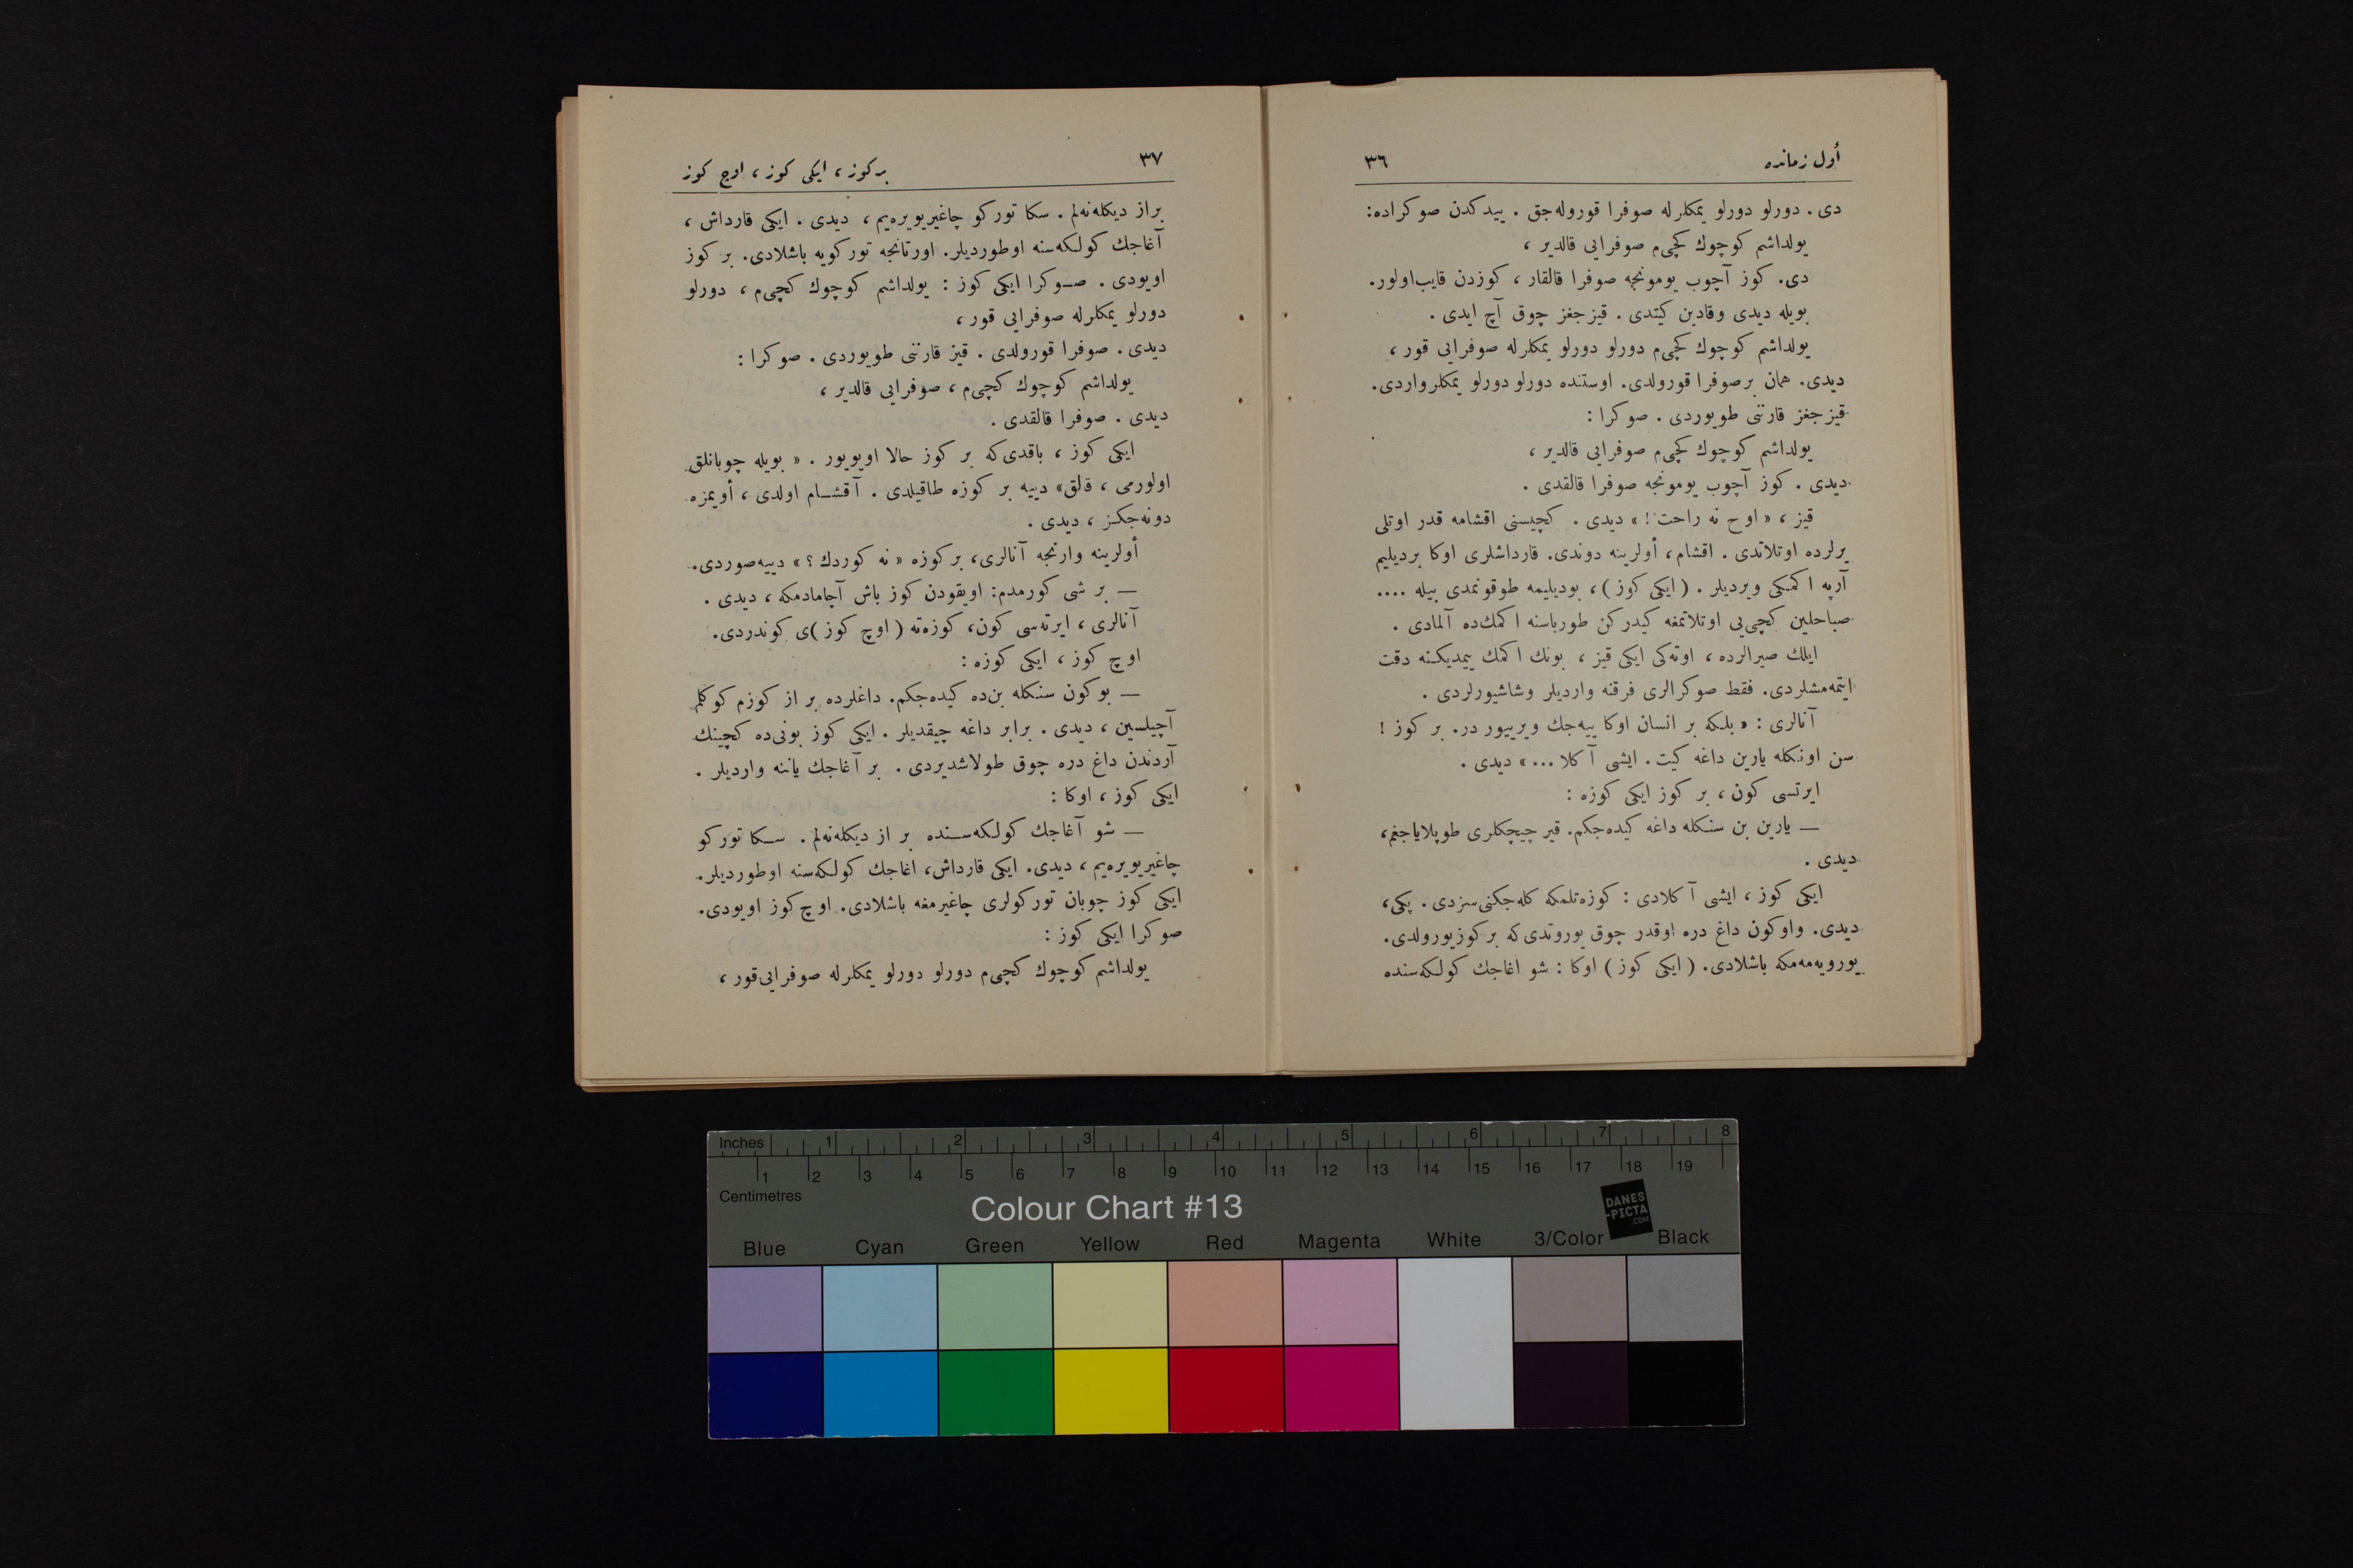 أول زمانده
٣٦
دی . دورلو دورلو یمکلرله صوفرا قوروله‌جق . ییدکدن صوکراده:
یولداشم کوچوك کچی‌م صوفرایی قالدیر ،
دی. کوز آچوب یومونجه صوفرا قالقار ، کوزدن قایب‌اولور.
بویله دیدی وقادین کیتدی . قیزجغز چوق آچ ایدی .
یولداشم کوچوك کچی‌م دورلو دورلو یمکلرله صوفرایی قور ،
دیدی. همان برصوفرا قورولدی. اوستنده دورلو دورلو یمکلرواردی.
قیزجغز قارننی طویوردی . صوکرا :
یولداشم کوچوك کچی‌م صوفرایی قالدیر ،
دیدی . کوز آچوب یومونجه صوفرا قالقدی .
قیز ، « اوح نه راحت ! » دیدی . کچیسنی اقشامه قدر اوتلی
یرلرده اوتلاتدی . اقشام ، أولرینه دوندی. قارداشلری اوکا بردیلیم
آرپه اکمکی ویردیلر . ( ایکی کوز ) ، بودیلیمه طوقونمدی بیله ....
صباحلین کچی‌یی اوتلاتمغه کیدرکن طورباسنه اکمك‌ده آلمادی .
ایلك صیرالرده ، اوته‌کی ایکی قیز ، بونك اکمك ییمدیکنه دقت
ایتمه‌مشلردی. فقط صوکرالری فرقنه واردیلر وشاشیورلردی .
آنالری : « بلکه بر انسان اوکا ییه‌جك ویرییور در. بر کوز !
سن اونکله یارین داغه کیت . ایشی آکلا ... » دیدی .
ایرتسی کون ، بر کوز ایکی کوزه :
— یارین بن سنکله داغه کیده‌جکم. قیر چیچکلری طوپلایاجغم،
دیدی .
ایکی کوز ، ایشی آکلادی : کوزه‌تلمکه کله‌جکنی‌سزدی . پکی،
دیدی. واوکون داغ دره اوقدر چوق یوروتدی‌که برکوزیورولدی.
یورویه‌مه‌مکه باشلادی. ( ایکی کوز ) اوکا : شو اغاجك کولکه‌سنده
٣٧
برکوز ، ایکی کوز ، اوچ کوز
براز دیکله‌نه‌لم . سکا تورکو چاغیریویره‌یم ، دیدی . ایکی قارداش ،
آغاجك کولکه‌سنه اوطوردیلر. اورتانجه تورکویه باشلادی. بر کوز
اویودی . صوکرا ایکی کوز : یولداشم کوچوك کچی‌م ، دورلو
دورلو یمکلرله صوفرایی قور ،
دیدی . صوفرا قورولدی . قیز قارننی طویوردی . صوکرا :
یولداشم کوچوك کچی‌م ، صوفرایی قالدیر ،
دیدی . صوفرا قالقدی .
ایکی کوز ، باقدی‌که بر کوز حالا اویویور . « بویله چوبانلق
اولورمی ، قالق» دییه بر کوزه طاقیلدی . آقشام اولدی ، أویمزه
دونه‌جکز ، دیدی .
أولرینه وارنجه آنالری، برکوزه « نه کوردك ؟ » دییه‌صوردی.
— بر شی کورمدم: اویقودن کوز باش آچامادمکه ، دیدی .
آنالری ، ایرته‌سی کون، کوزه‌ته ( اوچ کوز )ی کوندردی.
اوچ کوز ، ایکی کوزه :
— بوکون سنکله بن‌ده کیده‌جکم. داغلرده بر از کوزم کوکلم
آچیلسین ، دیدی . برابر داغه چیقدیلر . ایکی کوز بونی‌ده کچینك
آردندن داغ دره چوق طولاشدیردی . بر آغاجك یاننه واردیلر .
ایکی کوز ، اوکا :
— شو آغاجك کولکه‌سنده بر از دیکله‌نه‌لم . سکا تورکو
چاغیریویره‌یم ، دیدی. ایکی قارداش، اغاجك کولکه‌سنه اوطوردیلر.
ایکی کوز چوبان تورکولری چاغیرمغه باشلادی. اوچ کوز اویودی.
صوکرا ایکی کوز :
یولداشم کوچوك کچی‌م دورلو دورلو یمکلرله صوفرایی‌قور ،
Inches 1 2 3 4 5 6 7 8
1 2 3 4 5 6 7 8 9 10 11 12 13 14 15 16 17 18 19
Centimetres
Colour Chart #13
DANES
-PICTA
.COM
Blue Cyan Green Yellow Red Magenta White 3/Color Black